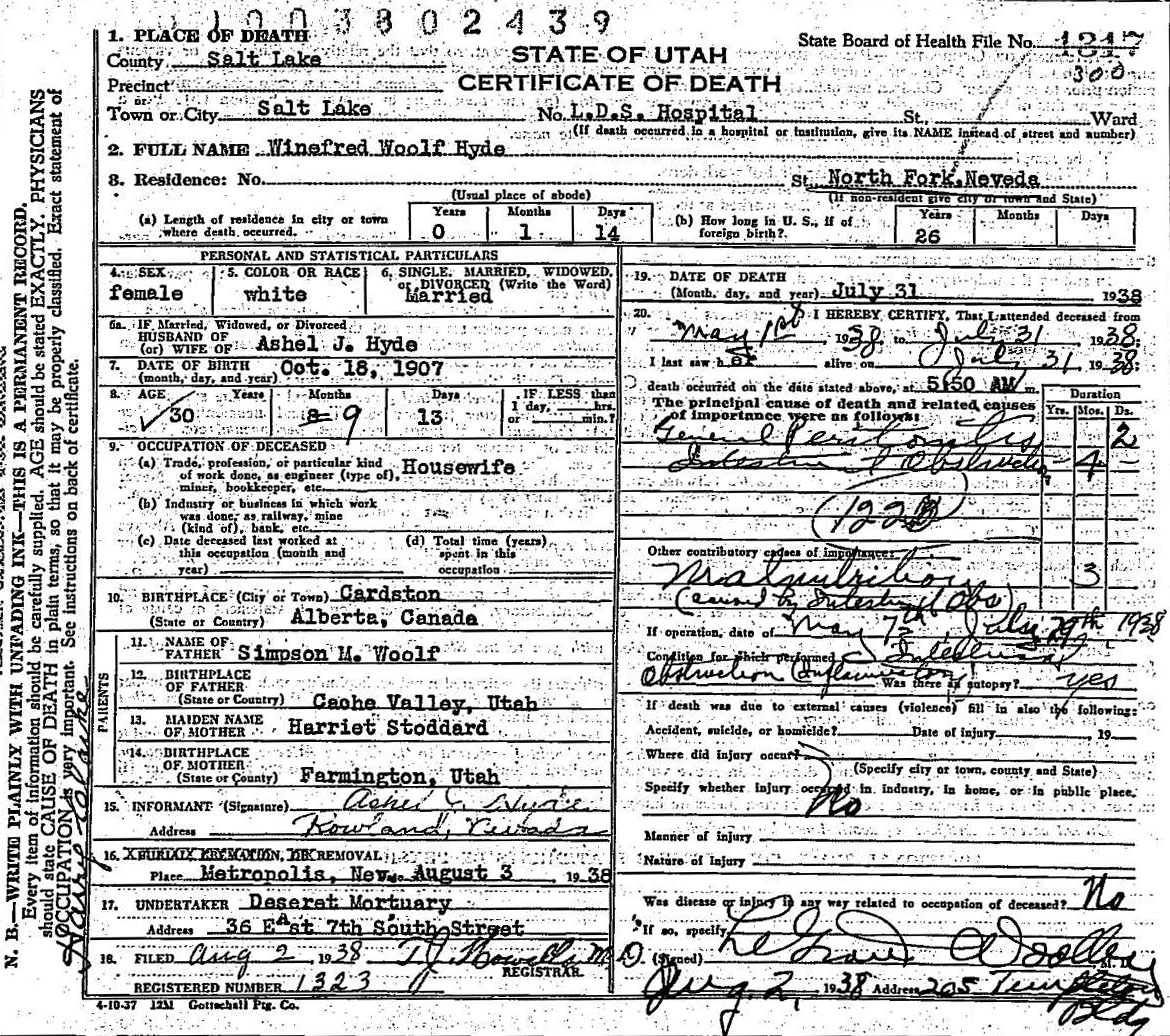 1003802439
1. PLACE OF DEATH
County Salt Lake
STATE OF UTAH
CERTIFICATE OF DEATH
State Board of Health File No. 1317
300
Precinct
or
Town or City Salt Lake No. L.D.S. Hospital St., Ward
(If death occurred in a hospital or institution, give its NAME instead of street and number)
2. FULL NAME Winefred Woolf Hyde
3. Residence: No. St. North Fork, Neveda
(Usual place of abode) (If non-resident give city or town and State)
(a) Length of residence in city or town where death occurred. Years 0 Months 1 Days 14
(b) How long in U. S., if of foreign birth? Years 26 Months Days
PERSONAL AND STATISTICAL PARTICULARS
4. SEX female
5. COLOR OR RACE white
6. SINGLE, MARRIED, WIDOWED, or DIVORCED (Write the Word) Married
6a. IF Married, Widowed, or Divorced
HUSBAND OF
(or) WIFE OF Ashel J. Hyde
7. DATE OF BIRTH
(month, day, and year) Oct. 18, 1907
8. AGE 30 Years Months 8 9 Days 13 IF LESS than 1 day, hrs. or min.?
9. OCCUPATION OF DECEASED
(a) Trade, profession, or particular kind
of work done, as engineer (type of), Housewife
miner, bookkeeper, etc.
(b) Industry or business in which work
was done, as railway, mine
(kind of), bank, etc.
(c) Date deceased last worked at
this occupation (month and
year)
(d) Total time (years)
spent in this
occupation
10. BIRTHPLACE (City or Town) Cardston
(State or Country) Alberta, Canada
PARENTS
11. NAME OF
FATHER Simpson M. Woolf
12. BIRTHPLACE
OF FATHER
(State or Country) Cache Valley, Utah
13. MAIDEN NAME
OF MOTHER Harriet Stoddard
14. BIRTHPLACE
OF MOTHER
(State or County) Farmington, Utah
15. INFORMANT (Signature) Ashel J. Hyde
Address Rowland, Nevada
16. BURIAL, CREMATION, OR REMOVAL
Place Metropolis, Nev. August 3, 1938
17. UNDERTAKER Deseret Mortuary
Address 36 East 7th South Street
18. FILED Aug 2, 1938 T. J. Howells M.D.
REGISTRAR.
REGISTERED NUMBER 1323
4-10-37 12M Gottschall Ptg. Co.
19. DATE OF DEATH
(Month, day, and year) July 31 1938
20. I HEREBY CERTIFY, That I attended deceased from
May 1st 1938, to July 31 1938;
I last saw her alive on July 31, 1938;
death occurred on the date stated above, at 5:50 AM m.
The principal cause of death and related causes
of importance were as follows:
Duration
Yrs. Mos. Ds.
General Peritonitis 2
Intestinal Obstruction - 4 -
(122B)
Other contributory causes of importance:
Malnutrition 3
(caused by Intestinal Obs)
If operation, date of May 7th, July 29th 1938
Condition for which performed Intestinal
Obstruction (inflammatory) Was there an autopsy? yes
If death was due to external causes (violence) fill in also the following:
Accident, suicide, or homicide? Date of injury 19
Where did injury occur?
(Specify city or town, county and State)
Specify whether injury occurred in industry, in home, or in public place.
No
Manner of injury
Nature of injury
Was disease or injury in any way related to occupation of deceased? No
If so, specify
(Signed) LeGrand Woolley M.
Aug. 2, 1938 Address 205 Templeton
Bldg
N. B.—WRITE PLAINLY WITH UNFADING INK—THIS IS A PERMANENT RECORD.
Every item of information should be carefully supplied. AGE should be stated EXACTLY. PHYSICIANS
should state CAUSE OF DEATH in plain terms, so that it may be properly classified. Exact statement of
OCCUPATION is very important. See instructions on back of certificate.